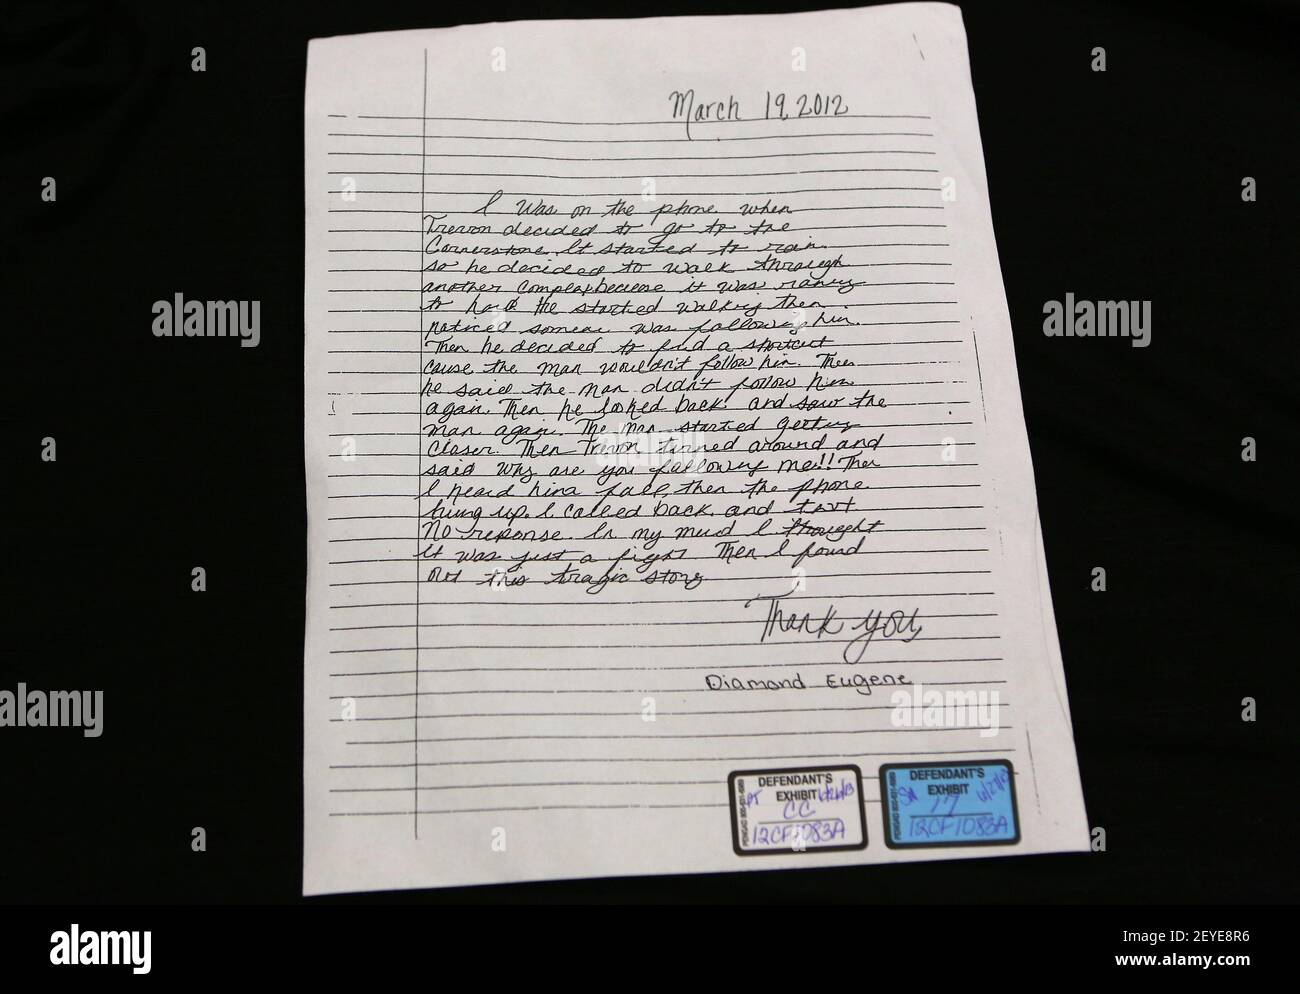 March 19, 2012
I was on the phone when
Trevon decided to go to the
Cornerstone. It started to rain
so he decided to walk through
another complex because it was raining
to hard. He started walking then
noticed someone was following him.
Then he decided to find a shortcut
cause the man wouldn't follow him. Then
he said the man didn't follow him
again. Then he looked back and saw the
man again. The man started getting
closer. Then Trevon turned around and
said Why are you following me!! Then
I heard him fall, then the phone
hung up. I called back and text
No reponse. In my mind I thought
it was just a fight. Then I found
out this tragic story
Thank you,
Diamond Eugene
DEFENDANT'S
EXHIBIT
CC
12CF1083A
DEFENDANT'S
EXHIBIT
17
12CF1083A
alamy
alamy
Image ID: 2EYE8R6
www.alamy.com